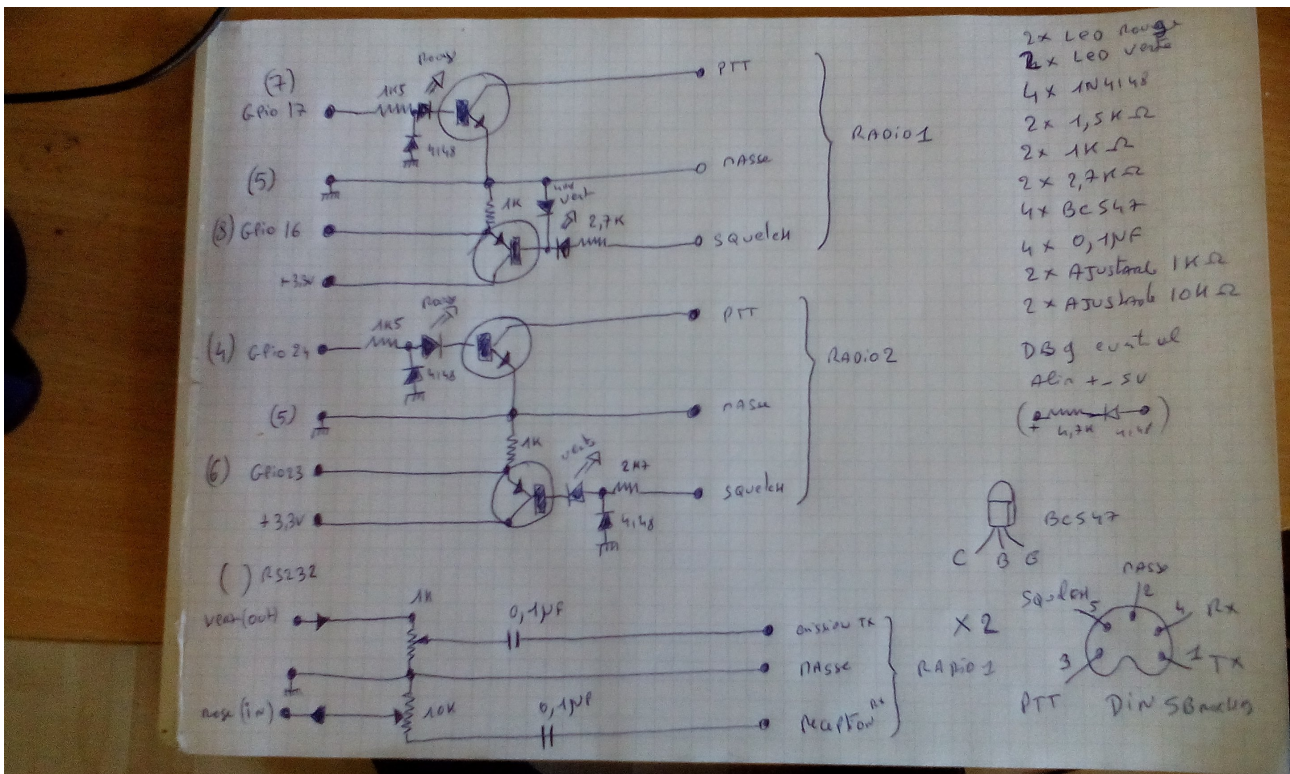 (7)
GPio 17
1K5
Rouge
4148
PTT
(5)
MAsse
RADiO1
(8) GPio 16
1K
vert
2,7K
SQuelcH
+3,3V
(4) GPio 24
1K5
Rouge
4148
PTT
(5)
MAsse
RADiO2
(6) GPio23
1K
vert
2K7
SQuelcH
+3,3V
4148
( ) RS232
vert(out)
1K
0,1µF
emission TX
MAsse
RADiO1
Rose(iN)
10K
0,1µF
Reception RX
X2
2x LeD Rouge
2x LeD verte
4x 1N4148
2x 1,5KΩ
2x 1KΩ
2x 2,7KΩ
4x BC547
4x 0,1µF
2x AJustable 1KΩ
2x AJustable 10KΩ
DB9 eventuel
Alim +- 5V
(+ 4,7K 4148)
BC547
C B E
MAsse
SQuelcH 5 2 4 RX
3 1 TX
PTT DiN 5Broches